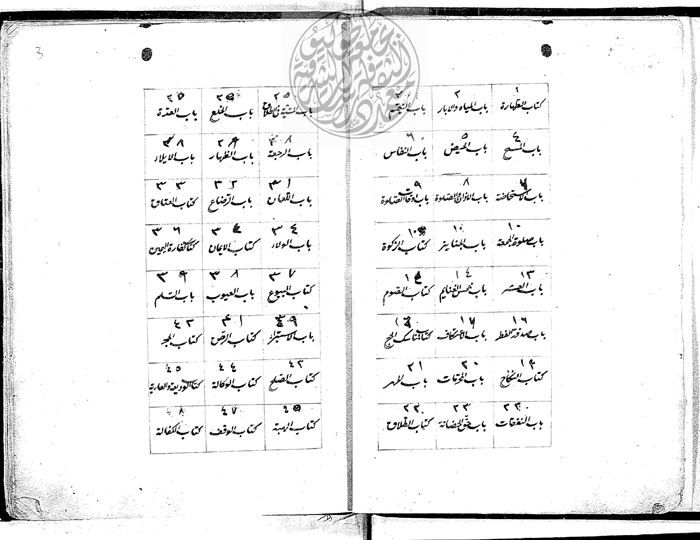 ١ ٢ ٣
كتاب الطهارة باب المياه والابار باب التيمم
٤ ٥ ٦
باب المسح باب الحيض باب النفاس
٨ ٩
باب الاستحاضة باب الاذان الصلوة باب اوقات الصلوة
١٠
باب صلوة الجمعة باب الجنايز كتاب الزكوة
١٣ ١٤ ١٥
باب العشر باب خمس الغنايم كتاب الصوم
١٦ ١٧
باب صدقة الفطر باب الاعتكاف كتاب مناسك الحج
١٩ ٢٠ ٢١
كتاب النكاح باب المحرمات باب المهر
٢٣
باب النفقات باب حق الحضانة كتاب الطلاق
باب الخلع باب العدة
باب الرجعة باب الظهار باب الايلاء
٣١ ٣٢ ٣٣
باب اللعان باب الرضاع كتاب العتاق
٣٤ ٣٦
باب الولاء كتاب الايمان كتاب كفارة اليمين
٣٧ ٣٨ ٣٩
كتاب البيوع باب العيوب باب السلم
٤١ ٤٢
باب الاستبراء كتاب الرهن كتاب الحجر
٤٣ ٤٤ ٤٥
كتاب الصلح كتاب الوكالة كتاب الوديعة والعارية
٤٥ ٤٧ ٤٨
كتاب الهبة كتاب الوقف كتاب الكفالة
3